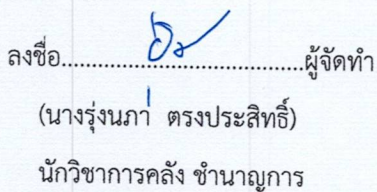 ลงชื่อ....................................ผู้จัดทำ
(นางรุ่งนภา ตรงประสิทธิ์)
นักวิชาการคลัง ชำนาญการ